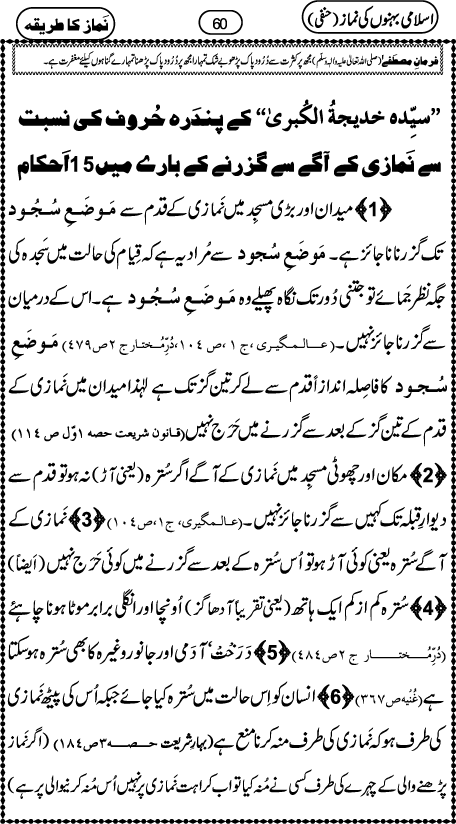 اسلامی بہنوں کی نماز (حنفی)
60
نماز کا طریقہ
فرمانِ مصطفےٰ (صلی اللہ تعالیٰ علیہ والہٖ وسلّم) مجھ پر کثرت سے دُرُودِ پاک پڑھو بے شک تمہارا مجھ پر دُرُودِ پاک پڑھنا تمہارے گناہوں کیلئے مغفرت ہے۔
’’سیِّدہ خدیجۃُ الکُبریٰ‘‘ کے پندَرہ حُروف کی نسبت
سے نَمازی کے آگے سے گزرنے کے بارے میں15 اَحکام
﴿1﴾ میدان اور بڑی مسجِد میں نَمازی کے قدم سے مَوضَعِ سُجُود
تک گزرنا ناجائز ہے۔ مَوضَعِ سُجود سے مُراد یہ ہے کہ قِیام کی حالت میں سَجدہ کی
جگہ نظر جمائے تو جتنی دُور تک نگاہ پھیلے وہ مَوضَعِ سُجُود ہے۔ اس کے درمیان
سے گزرنا جائز نہیں۔ (عالمگیری ،ج ۱ ،ص ۱۰٤ ،دُرِّمُختارج ۲ص٤٧٩) مَوضَعِ
سُجود کا فاصِلہ اندازاً قدم سے لے کر تین گز تک ہے لہٰذا میدان میں نَمازی کے
قدم کے تین گز کے بعد سے گزرنے میں حَرَج نہیں (قانونِ شریعت حصہ ۱وّل ص ١١٤)
﴿2﴾ مکان اور چھوٹی مسجد میں نَمازی کے آگے اگر سُترہ (یعنی آڑ) نہ ہو تو قدم سے
دیوارِ قبلہ تک کہیں سے گزرنا جائز نہیں۔ (عالمگیری، ج ۱،ص ۱۰٤) ﴿3﴾ نَمازی کے
آگے سُترہ یعنی کوئی آڑ ہو تو اُس سُترہ کے بعد سے گزرنے میں کوئی حَرَج نہیں (اَیضاً)
﴿4﴾ سُترہ کم از کم ایک ہاتھ (یعنی تقریباً آدھا گز) اُونچا اور انگلی برابر موٹا ہونا چاہئے
(دُرِّمُختار ج ۲ص ٤٨٤) ﴿5﴾ دَرَخت ' آدمی اور جانور وغیرہ کا بھی سُترہ ہو سکتا
ہے (غُنیہ ص ٣٦٧) ﴿6﴾ انسان کو اِس حالت میں سُترہ کیا جائے جبکہ اُس کی پیٹھ نَمازی
کی طرف ہو کہ نَمازی کی طرف منہ کرنا منع ہے (بہارِ شریعت حصہ ۳ص ١٨٤) (اگر نَماز
پڑھنے والی کے چہرے کی طرف کسی نے مُنہ کیا تو اب کراہت نَمازی پر نہیں اُس مُنہ کرنیوالی پر ہے)